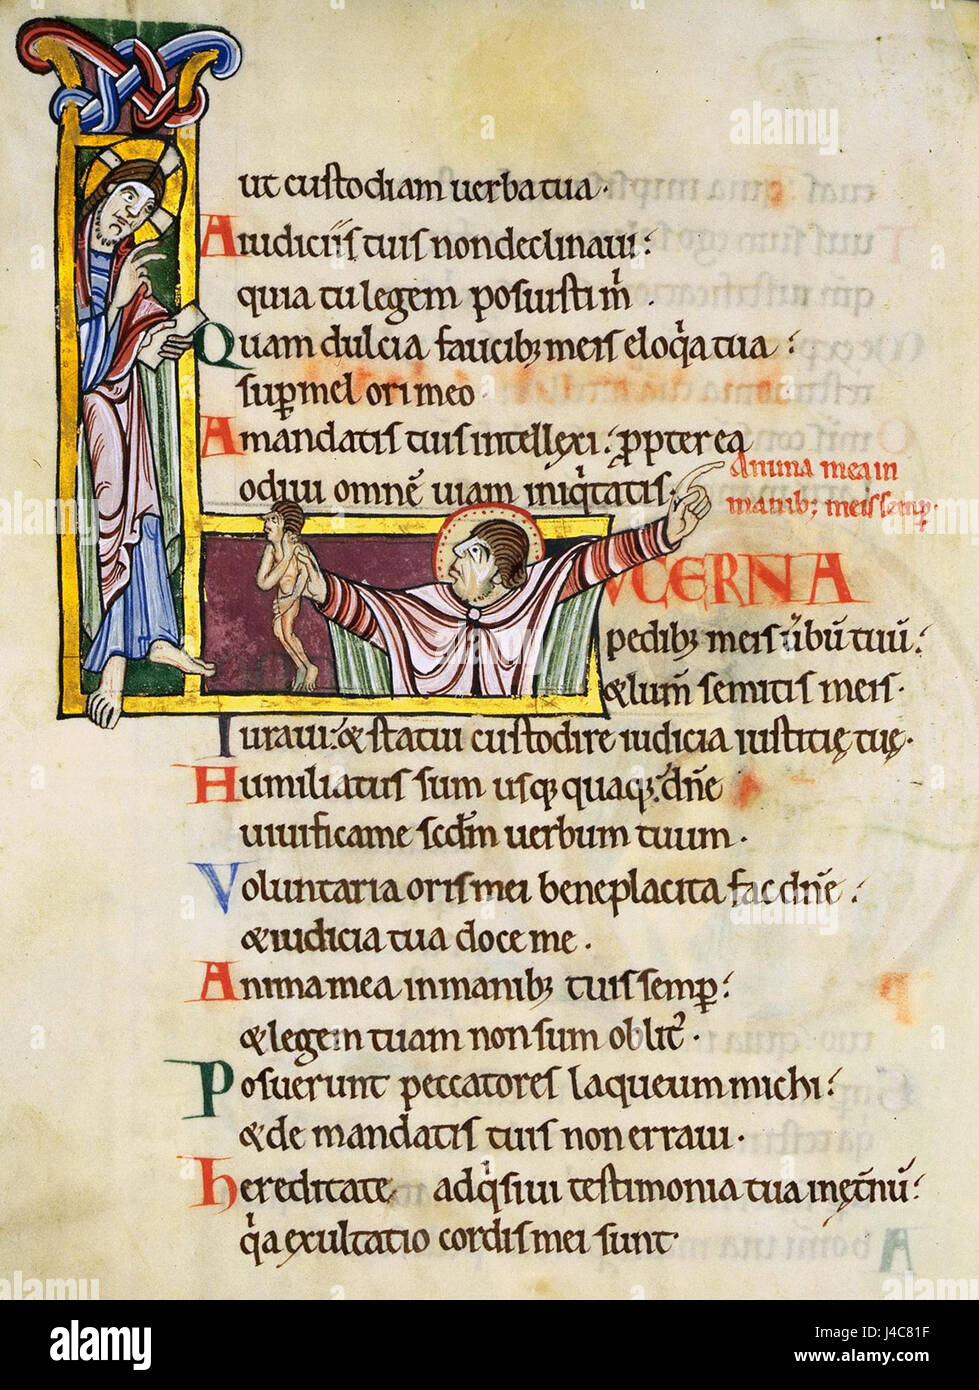 ut custodiam uerba tua.
A iudiciis tuis non declinaui:
quia tu legem posuisti m̃.
Quam dulcia faucibꝫ meis eloq̃a tua:
sup̃ mel ori meo.
A mandatis tuis intellexi: ꝓpterea
odiui omnẽ uiam iniq̃tatis.
Anima mea in
manibꝫ meis semp̃.
LUCERNA
pedibꝫ meis ũbũ tuũ:
&lum̃ semitis meis.
Iuraui: & statui custodire iudicia iustitię tuę.
Humiliatus sum usqꝫ quaqꝫ: dñe
uiuifica me scdm̃ uerbum tuum.
Voluntaria oris mei beneplacita fac dñe:
&iudicia tua doce me.
Anima mea in manibꝫ tuis semp̃:
&legem tuam non sum oblitꝰ.
Posuerunt peccatores laqueum michi:
&de mandatis tuis non erraui.
hereditate adq̃siui testimonia tua inęt̃nũ:
q̃a exultatio cordis mei sunt.
alamy
alamy stock photo
J4C81F
www.alamy.com